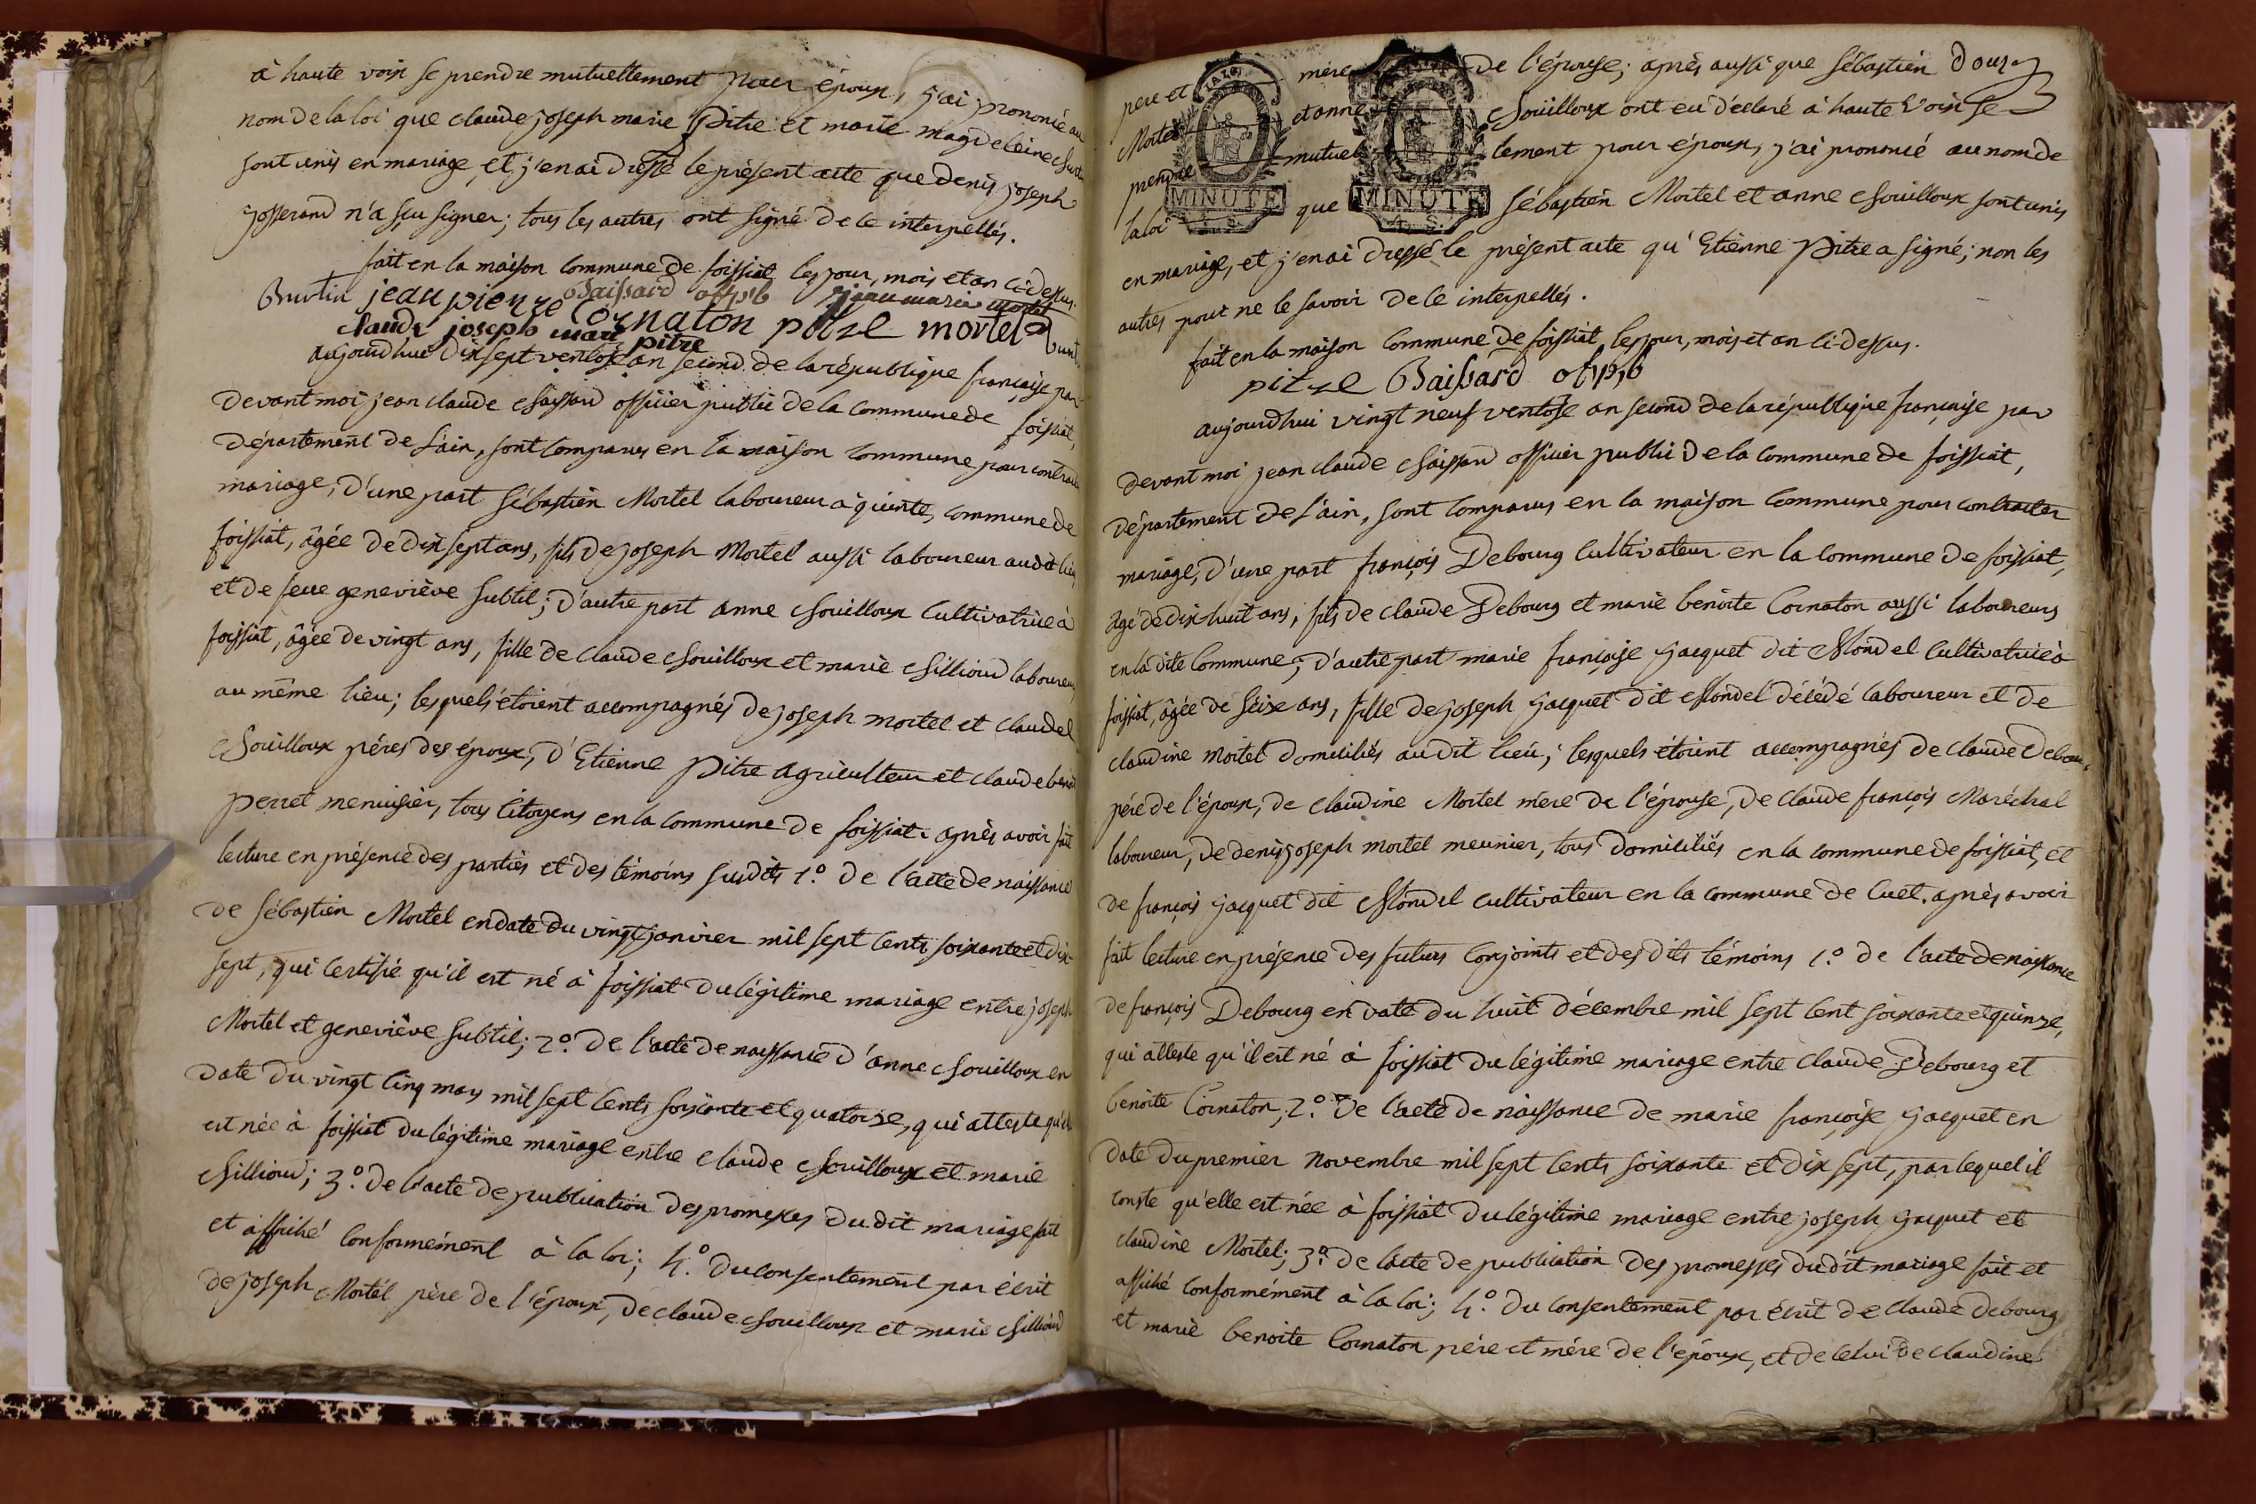 à haute voix se prendre mutuellement pour époux, j'ai prononcé au
nom de la loi que claude joseph marie Pitre et marie magdeleine
sont unis en mariage et j'en ai dressé le présent acte que denis joseph
josserand n'a sçu signer; tous les autres ont signé de ce interpellés.
fait en la maison commune de foissiat les jour, mois et an ci-dessus.
Burtin jean pierre Baissard off. pb jean marie mortel
claude joseph mari pitre Cornaton pitre mortel
aujourdhui dix sept ventose an second de la république française par
devant moi jean claude Baissard officier public de la commune de foissiat,
département de l'ain, sont comparus en la maison commune pour contracter
mariage, d'une part Sébastien Mortel laboureur à quinte, commune de
foissiat, âgée de dix sept ans, fils de joseph Mortel aussi laboureur audit lieu
et de feue geneviève subtil; d'autre part anne Bouilloux cultivatrice à
foissiat, âgée de vingt ans, fille de claude Bouilloux et marie Billioud laboureurs
au même lieu; lesquels étoient accompagnés de joseph mortel et claude
Bouilloux péres des époux, d'Etienne Pitre agriculteur et claude benoit
perret menuisier, tous citoyens en la commune de foissiat. après avoir fait
lecture en présence des parties et des témoins susdits 1.º de l'acte de naissance
de Sébastien Mortel en date du vingt janvier mil sept cents soixante et dix
sept, qui certifie qu'il est né à foissiat du légitime mariage entre joseph
Mortel et geneviève subtil; 2.º de l'acte de naissance d'anne Bouilloux en
date du vingt cinq may mil sept cents soixante et quatorze, qui atteste qu'elle
est née à foissiat du légitime mariage entre claude Bouilloux et marie
Billioud; 3.º de l'acte de publication des promesses dudit mariage fait
et affiché conformément à la loi; 4.º du consentement par écrit
de joseph Mortel père de l'époux, de claude Bouilloux et marie Billioud
pere et mère de l'épouse; après aussi que Sébastien
Mortel et anne Bouilloux ont eu déclaré à haute voix se
prendre mutuellement pour époux, j'ai prononcé au nom de
la loi que Sébastien Mortel et anne Bouilloux sont unis
MINUTE MINUTE
en mariage, et j'en ai dressé le présent acte qu'Etienne Pitre a signé; non les
autres pour ne le savoir de ce interpellés.
fait en la maison commune de foissiat, les jour, mois et an ci-dessus.
pitre Baissard off. pb
aujourdhui vingt neuf ventose an second de la république française par
devant moi jean claude Baissard officier public de la commune de foissiat,
département de l'ain, sont comparus en la maison commune pour contracter
mariage, d'une part françois Debourg cultivateur en la commune de foissiat,
âgé de dix huit ans, fils de claude Debourg et marie benoite Cornaton aussi laboureurs
en la dite commune; d'autre part marie françoise jacquet dit Blondel cultivatrice à
foissiat, âgée de seize ans, fille de joseph jacquet dit Blondel décédé laboureur et de
claudine Mortel domiciliés audit lieu; lesquels étoient accompagnés de claude Debourg
pére de l'époux, de claudine Mortel mère de l'épouse, de claude françois Maréchal
laboureur, de denis joseph mortel meunier, tous domiciliés en la commune de foissiat, et
de françois jacquet dit Blondel cultivateur en la commune de Cuet. après avoir
fait lecture en présence des futurs conjoints et des dits témoins 1.º de l'acte de naissance
de françois Debourg en date du huit décembre mil sept cent soixante et quinze,
qui atteste qu'il est né à foissiat du légitime mariage entre claude Debourg et
benoite Cornaton; 2.º de l'acte de naissance de marie françoise jacquet en
date du premier novembre mil sept cents soixante et dix sept, par lequel il
conste qu'elle est née à foissiat du légitime mariage entre joseph jacquet et
claudine Mortel; 3.º de l'acte de publication des promesses dudit mariage fait et
affiché conformément à la loi; 4.º du consentement par écrit de claude Debourg
et marie benoite Cornaton père et mère de l'époux, et de celui de claudine